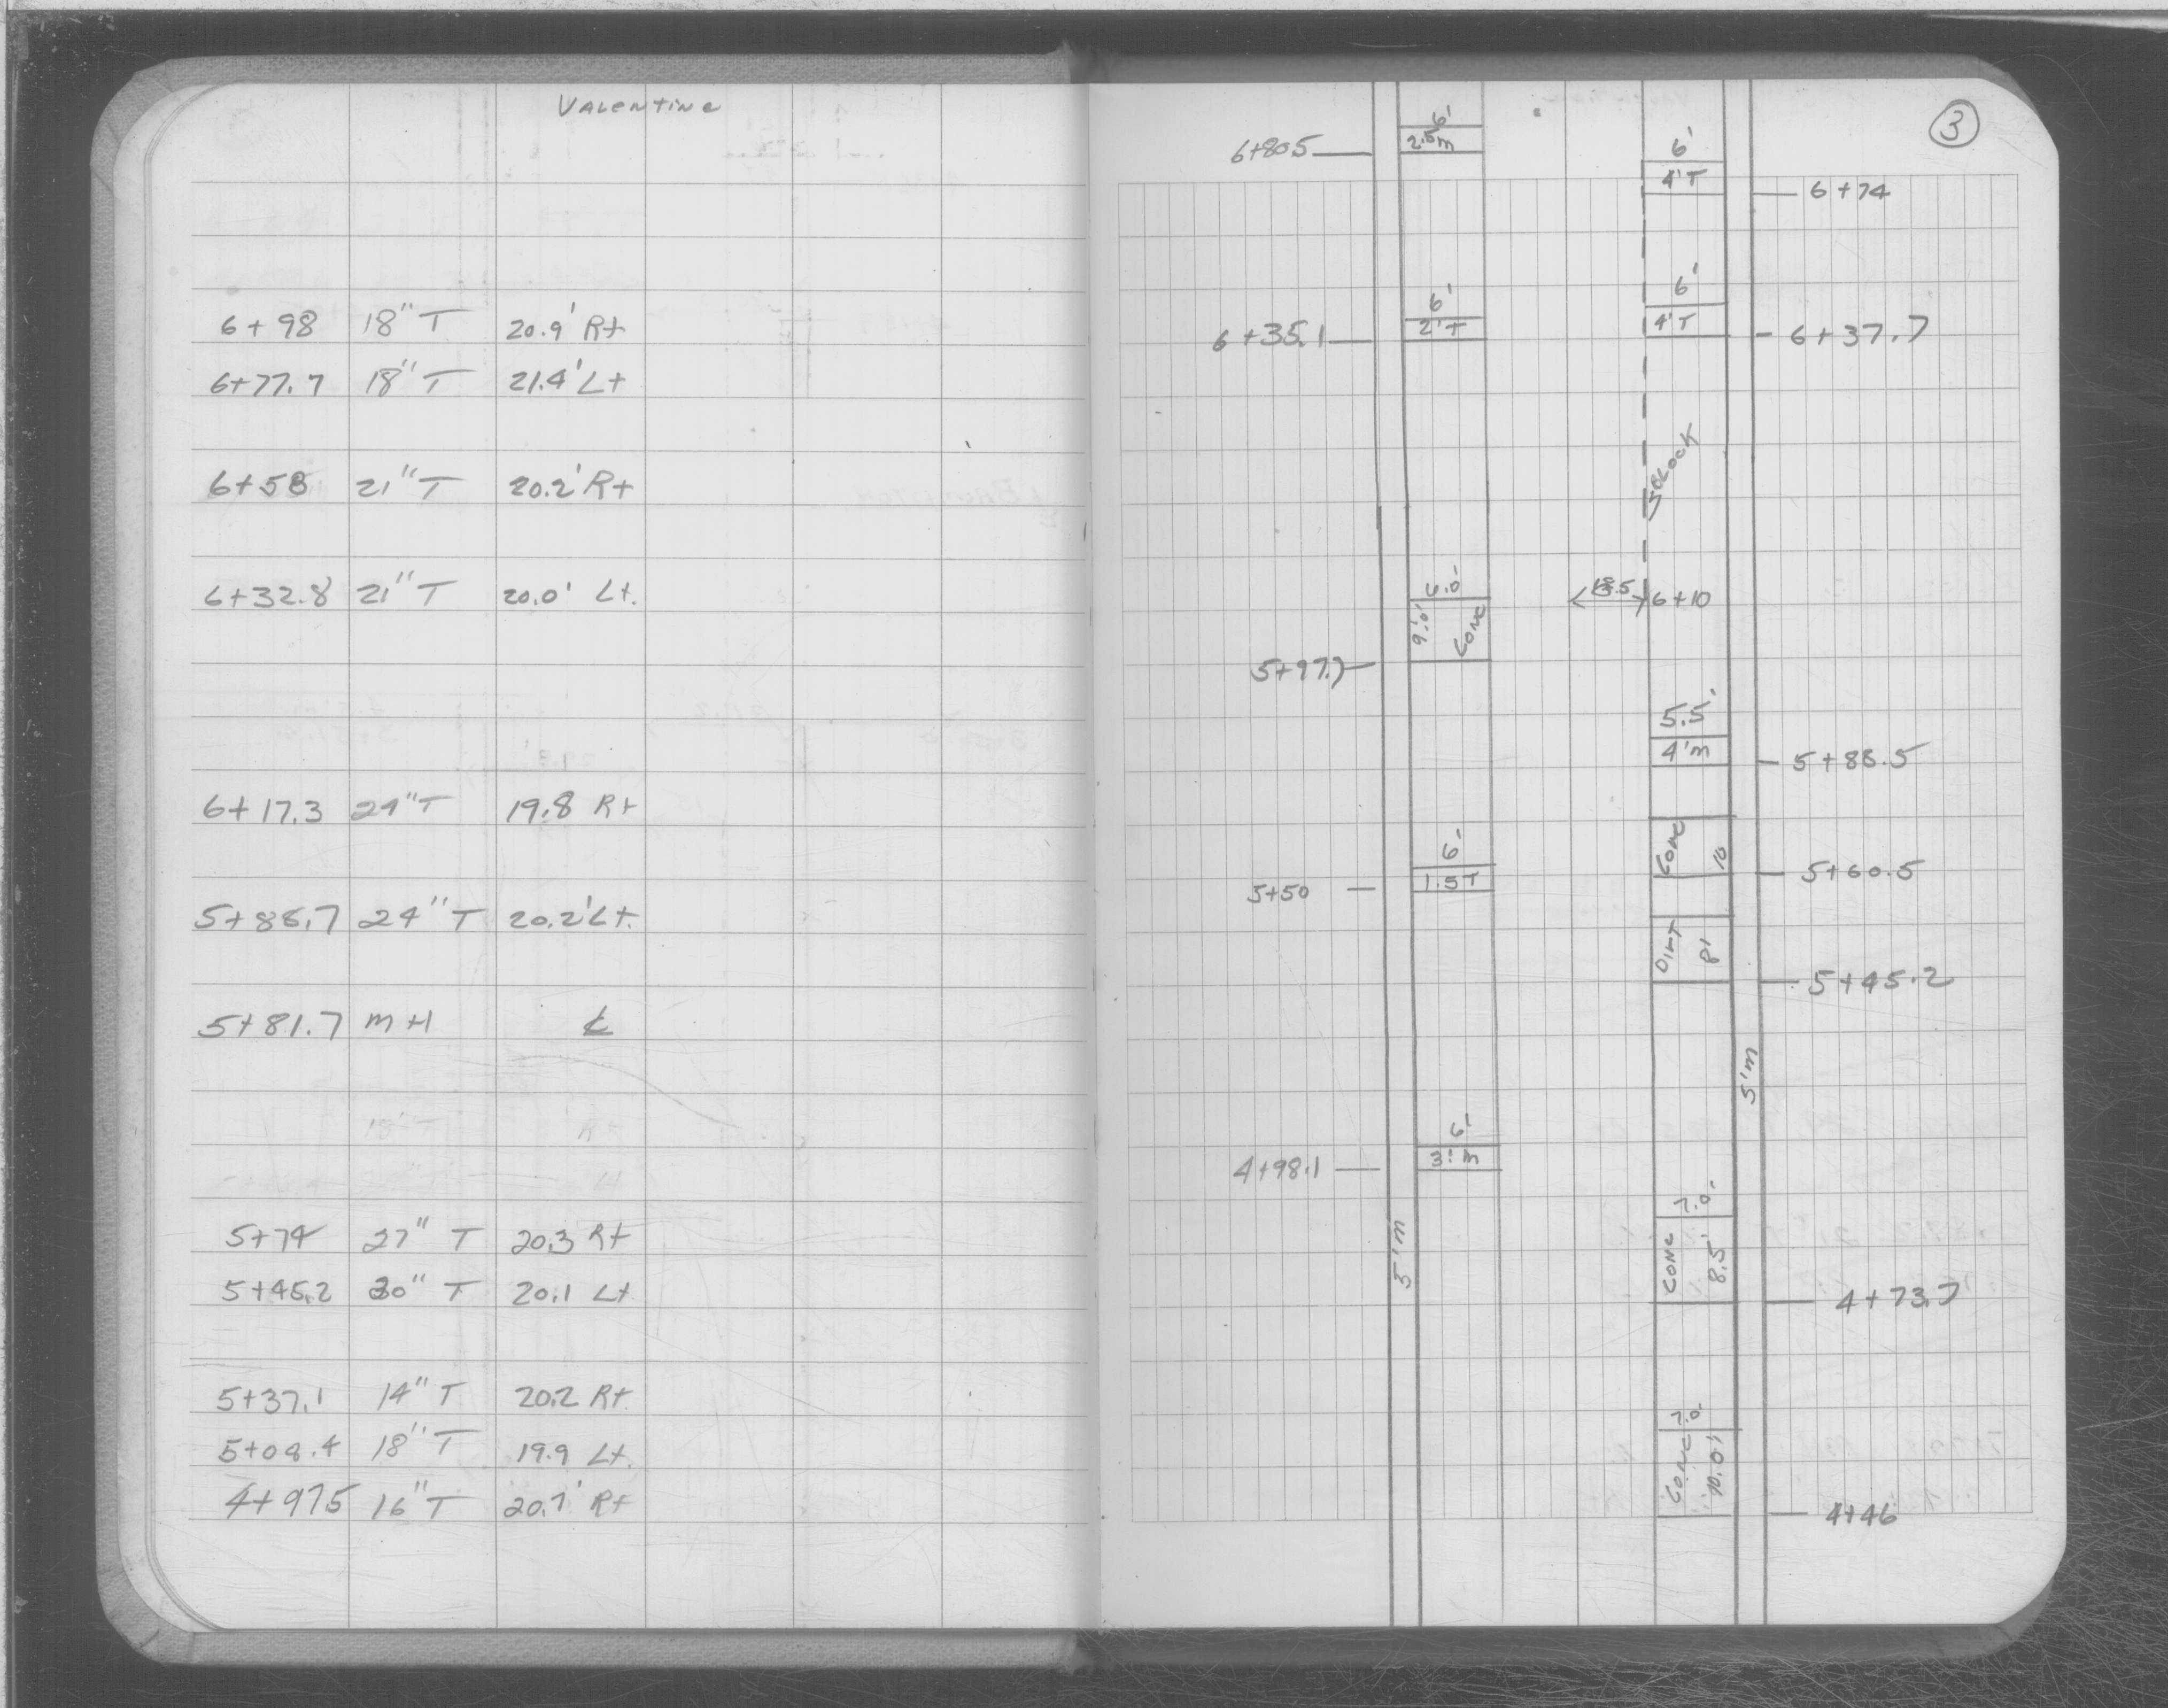 Valentine
6+98 18" T 20.9' Rt
6+77.7 18" T 21.4' Lt
6+58 21" T 20.2' Rt
6+32.8 21" T 20.0' Lt.
6+17.3 24" T 19.8 Rt
5+88.7 24" T 20.2' Lt.
5+81.7 MH ℄
18" T Rt
5+74 27" T 20.3 Rt
5+45.2 30" T 20.1 Lt
5+37.1 14" T 20.2 Rt.
5+08.4 18" T 19.9 Lt.
4+97.5 16" T 20.7' Rt
3
6'
6+80.5 2.5 m
6'
4' T 6+74
6'
6+35.1 2' T
6'
4' T 6+37.7
Block
18.5 6+10
6.0'
9.0' Conc
5+97.7
5.5'
4' m 5+88.5
Conc 10 5+60.5
6'
5+50 1.5 T
Dirt 8' 5+45.2
5' m
6'
4+98.1 3' m
5' m
7.0'
Conc 8.5' 4+73.7
7.0'
Conc 10.0' 4+46